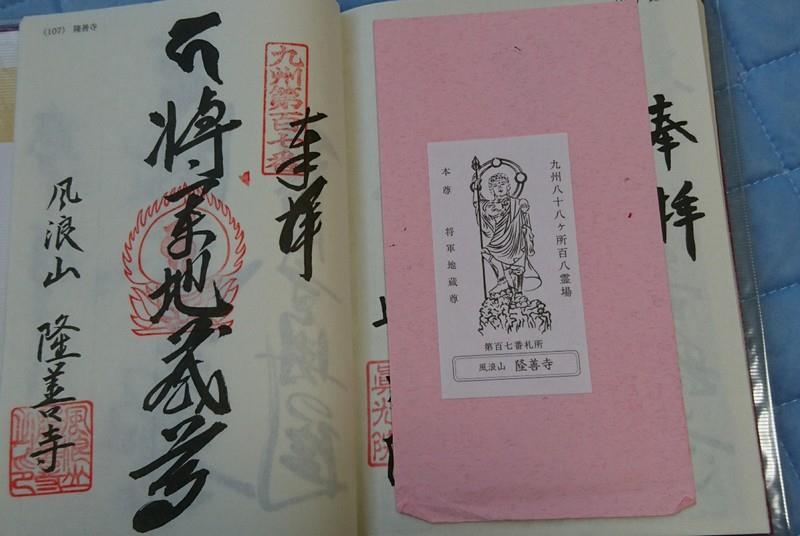 (107) 隆善寺
九州第百七番
奉拝
将軍地蔵尊
風浪山 隆善寺
奉拝
眞光院
九州八十八ヶ所百八霊場
本尊 将軍地蔵尊
第百七番札所
風浪山 隆善寺